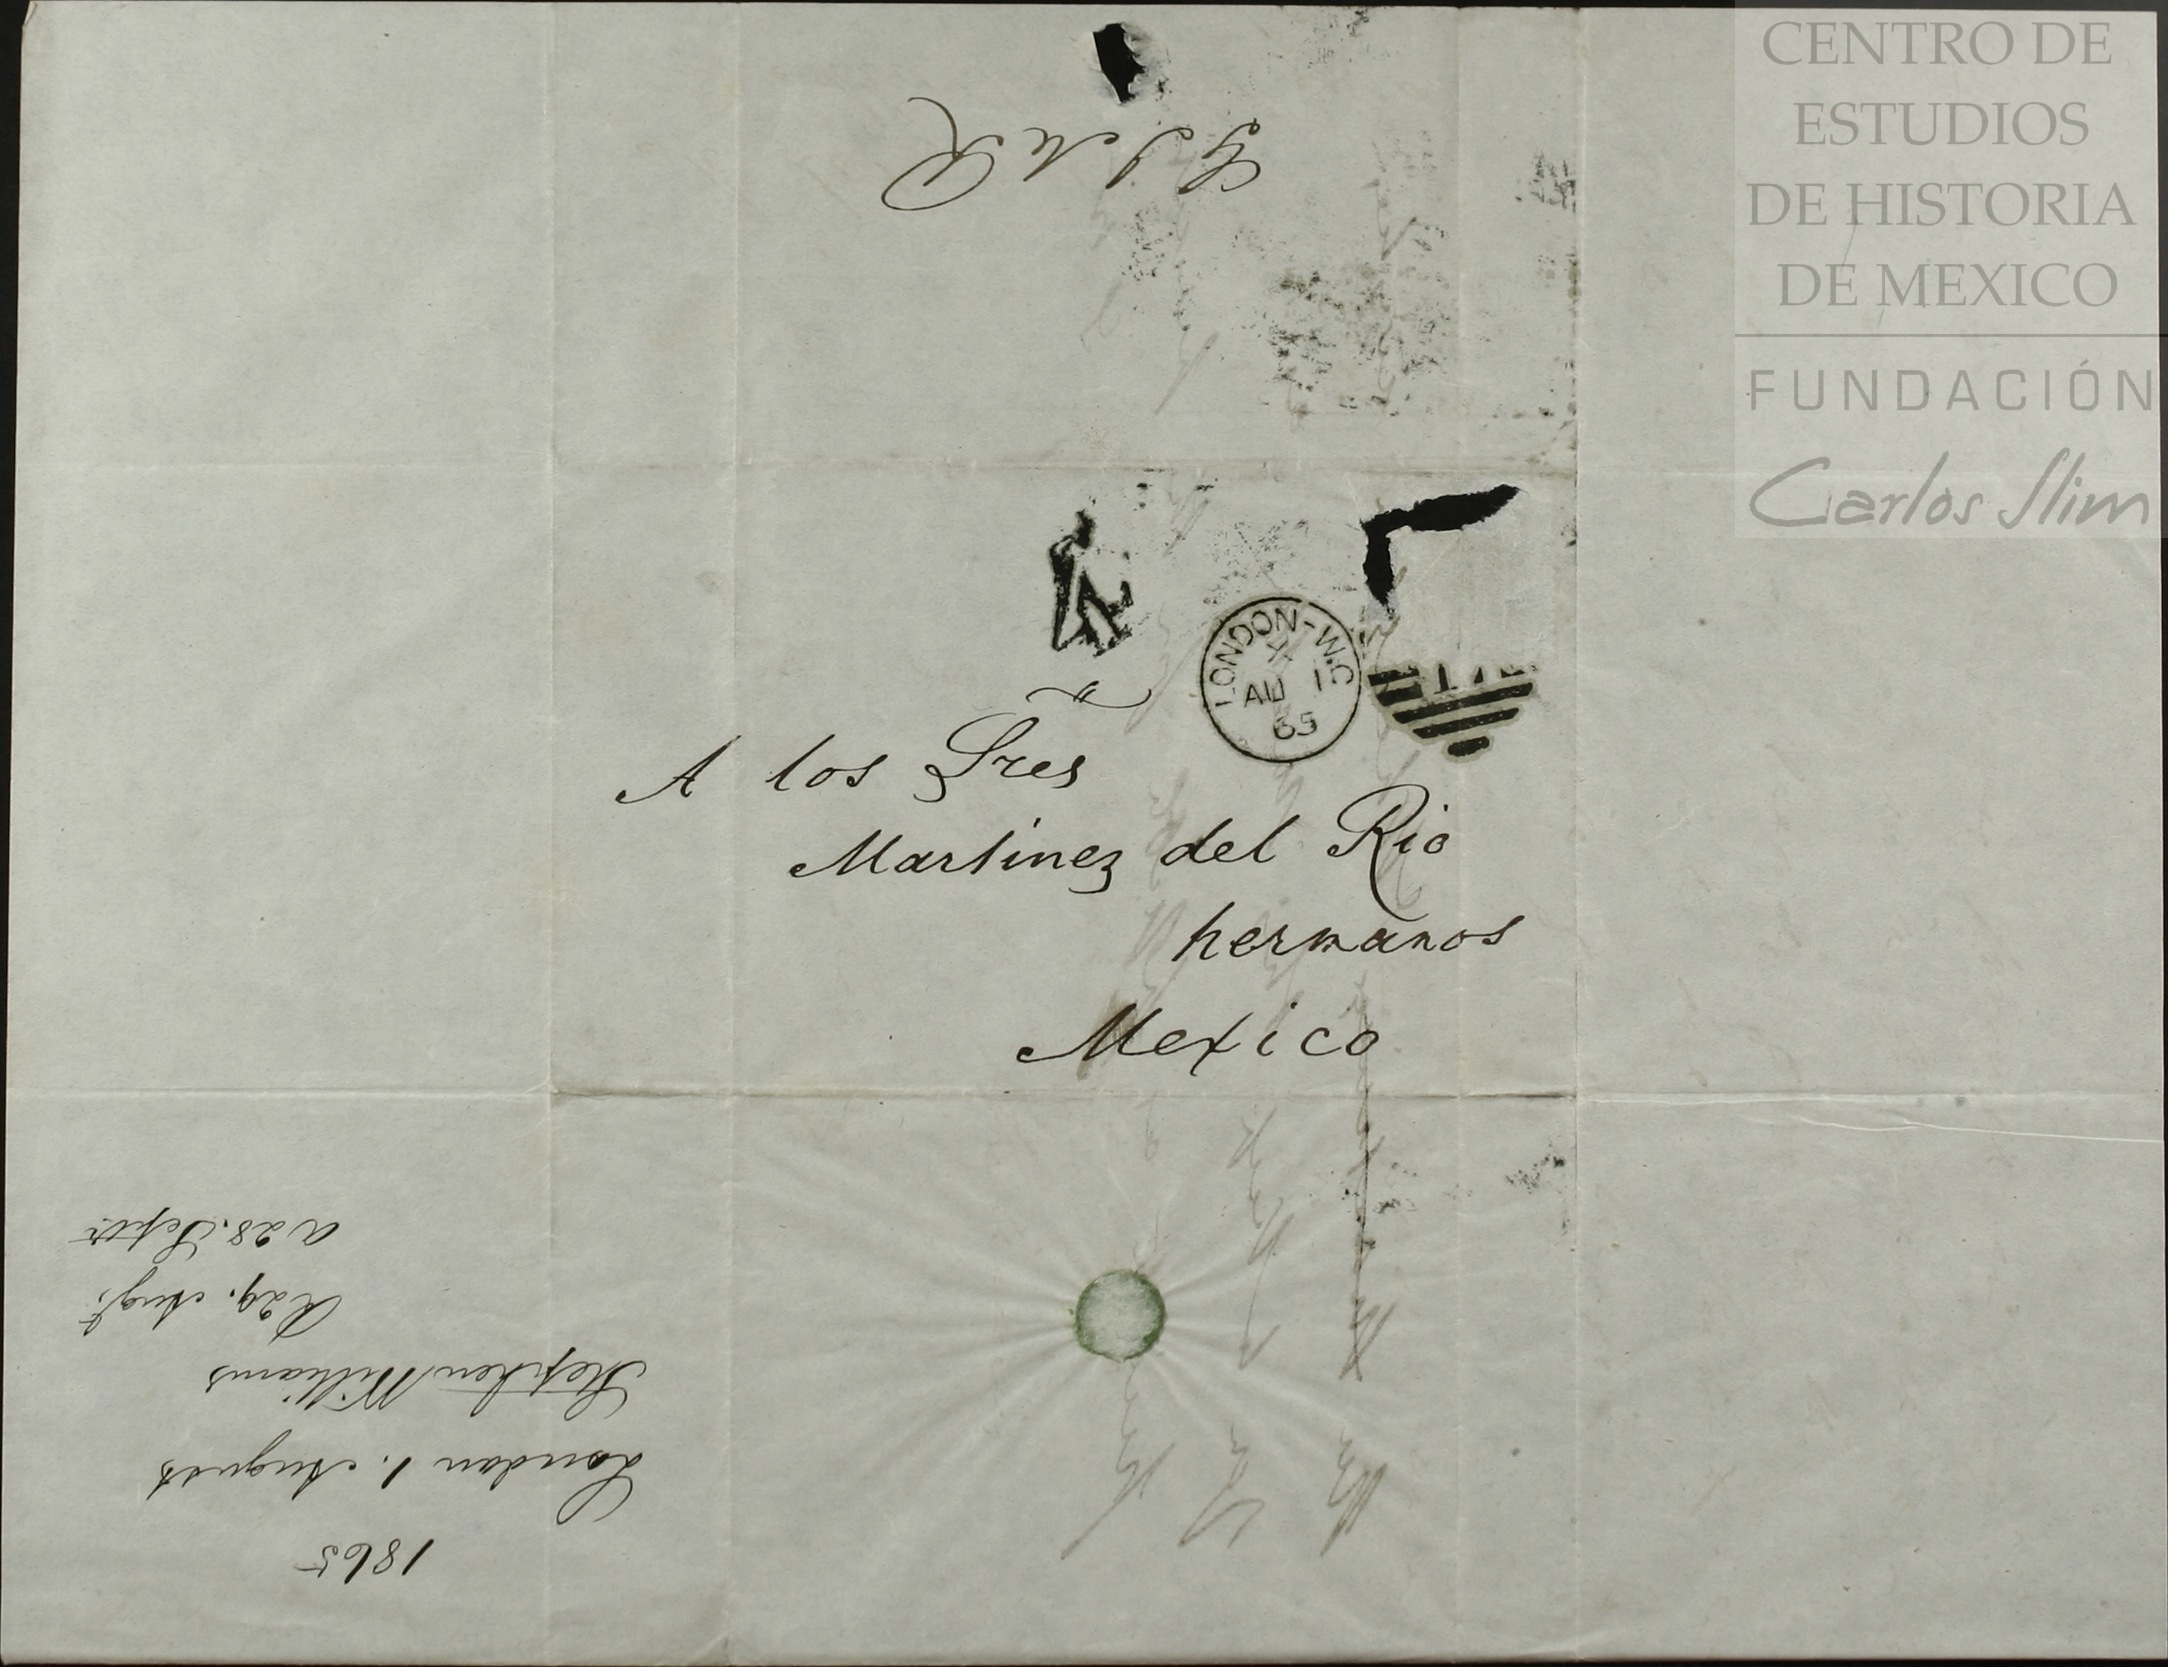 CENTRO DE
ESTUDIOS
DE HISTORIA
DE MEXICO
FUNDACIÓN
Carlos Slim
4
LONDON-W.C
X
AU 1
65
A los Sres
Martinez del Rio
hermanos
Mexico
1865
London 1. August
Stephen Williams
R 29. Augt.
a 28. Septr